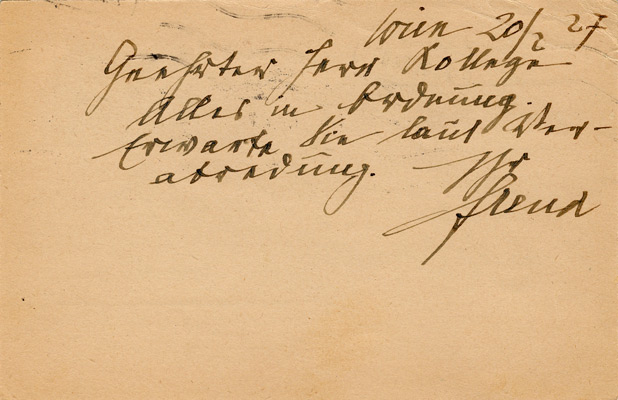 Wien 20/2 27
Geehrter Herr Kollege
Alles in Ordnung.
Erwarte Sie laut Ver-
abredung. Ihr
Freud